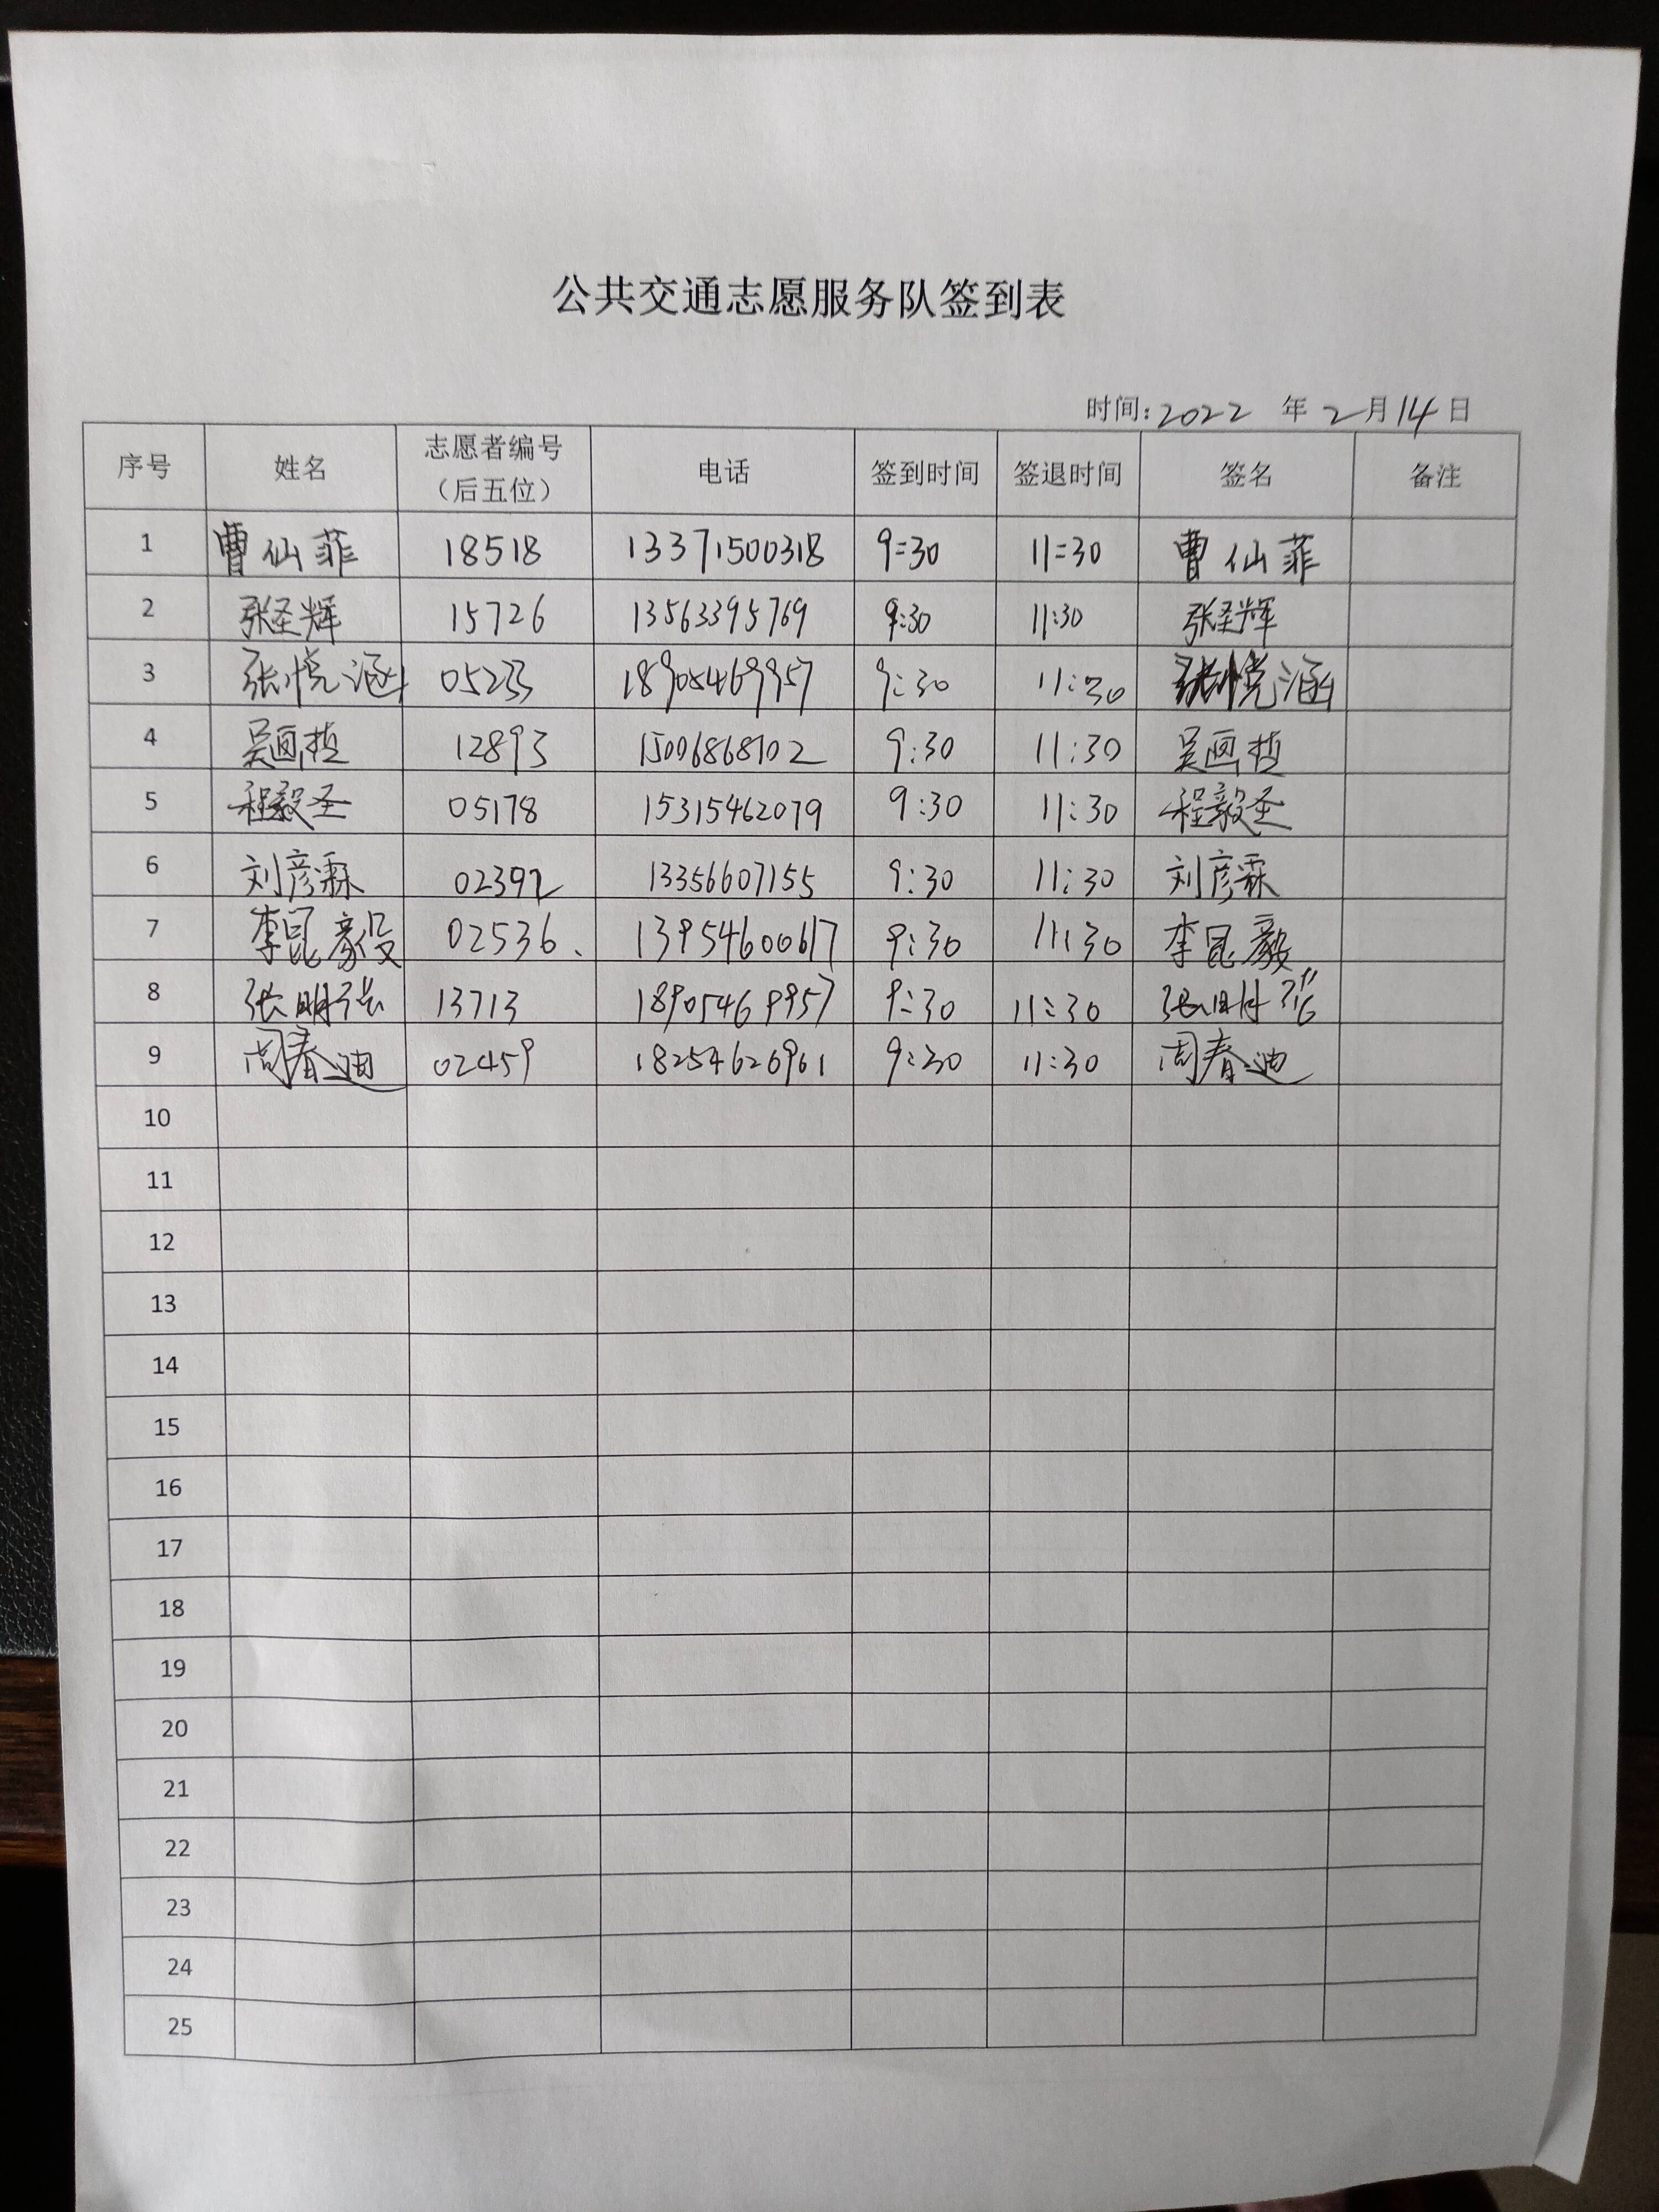 公共交通志愿服务队签到表
时间:2022 年 2月14日
序号 姓名 志愿者编号（后五位） 电话 签到时间 签退时间 签名 备注
1 曹仙菲 18518 13371500318 9:30 11:30 曹仙菲
2 张圣辉 15726 13563395769 9:30 11:30 张圣辉
3 张悦涵 05233 18905469957 9:30 11:30 张悦涵
4 吴画哲 12893 15006868702 9:30 11:30 吴画哲
5 程毅圣 05178 15315462079 9:30 11:30 程毅圣
6 刘彦霖 02392 13356607155 9:30 11:30 刘彦霖
7 李昆毅 02536 13954600617 9:30 11:30 李昆毅
8 张明 13713 18905469957 9:30 11:30 张明
9 周春迪 02459 18254626961 9:30 11:30 周春迪
10
11
12
13
14
15
16
17
18
19
20
21
22
23
24
25